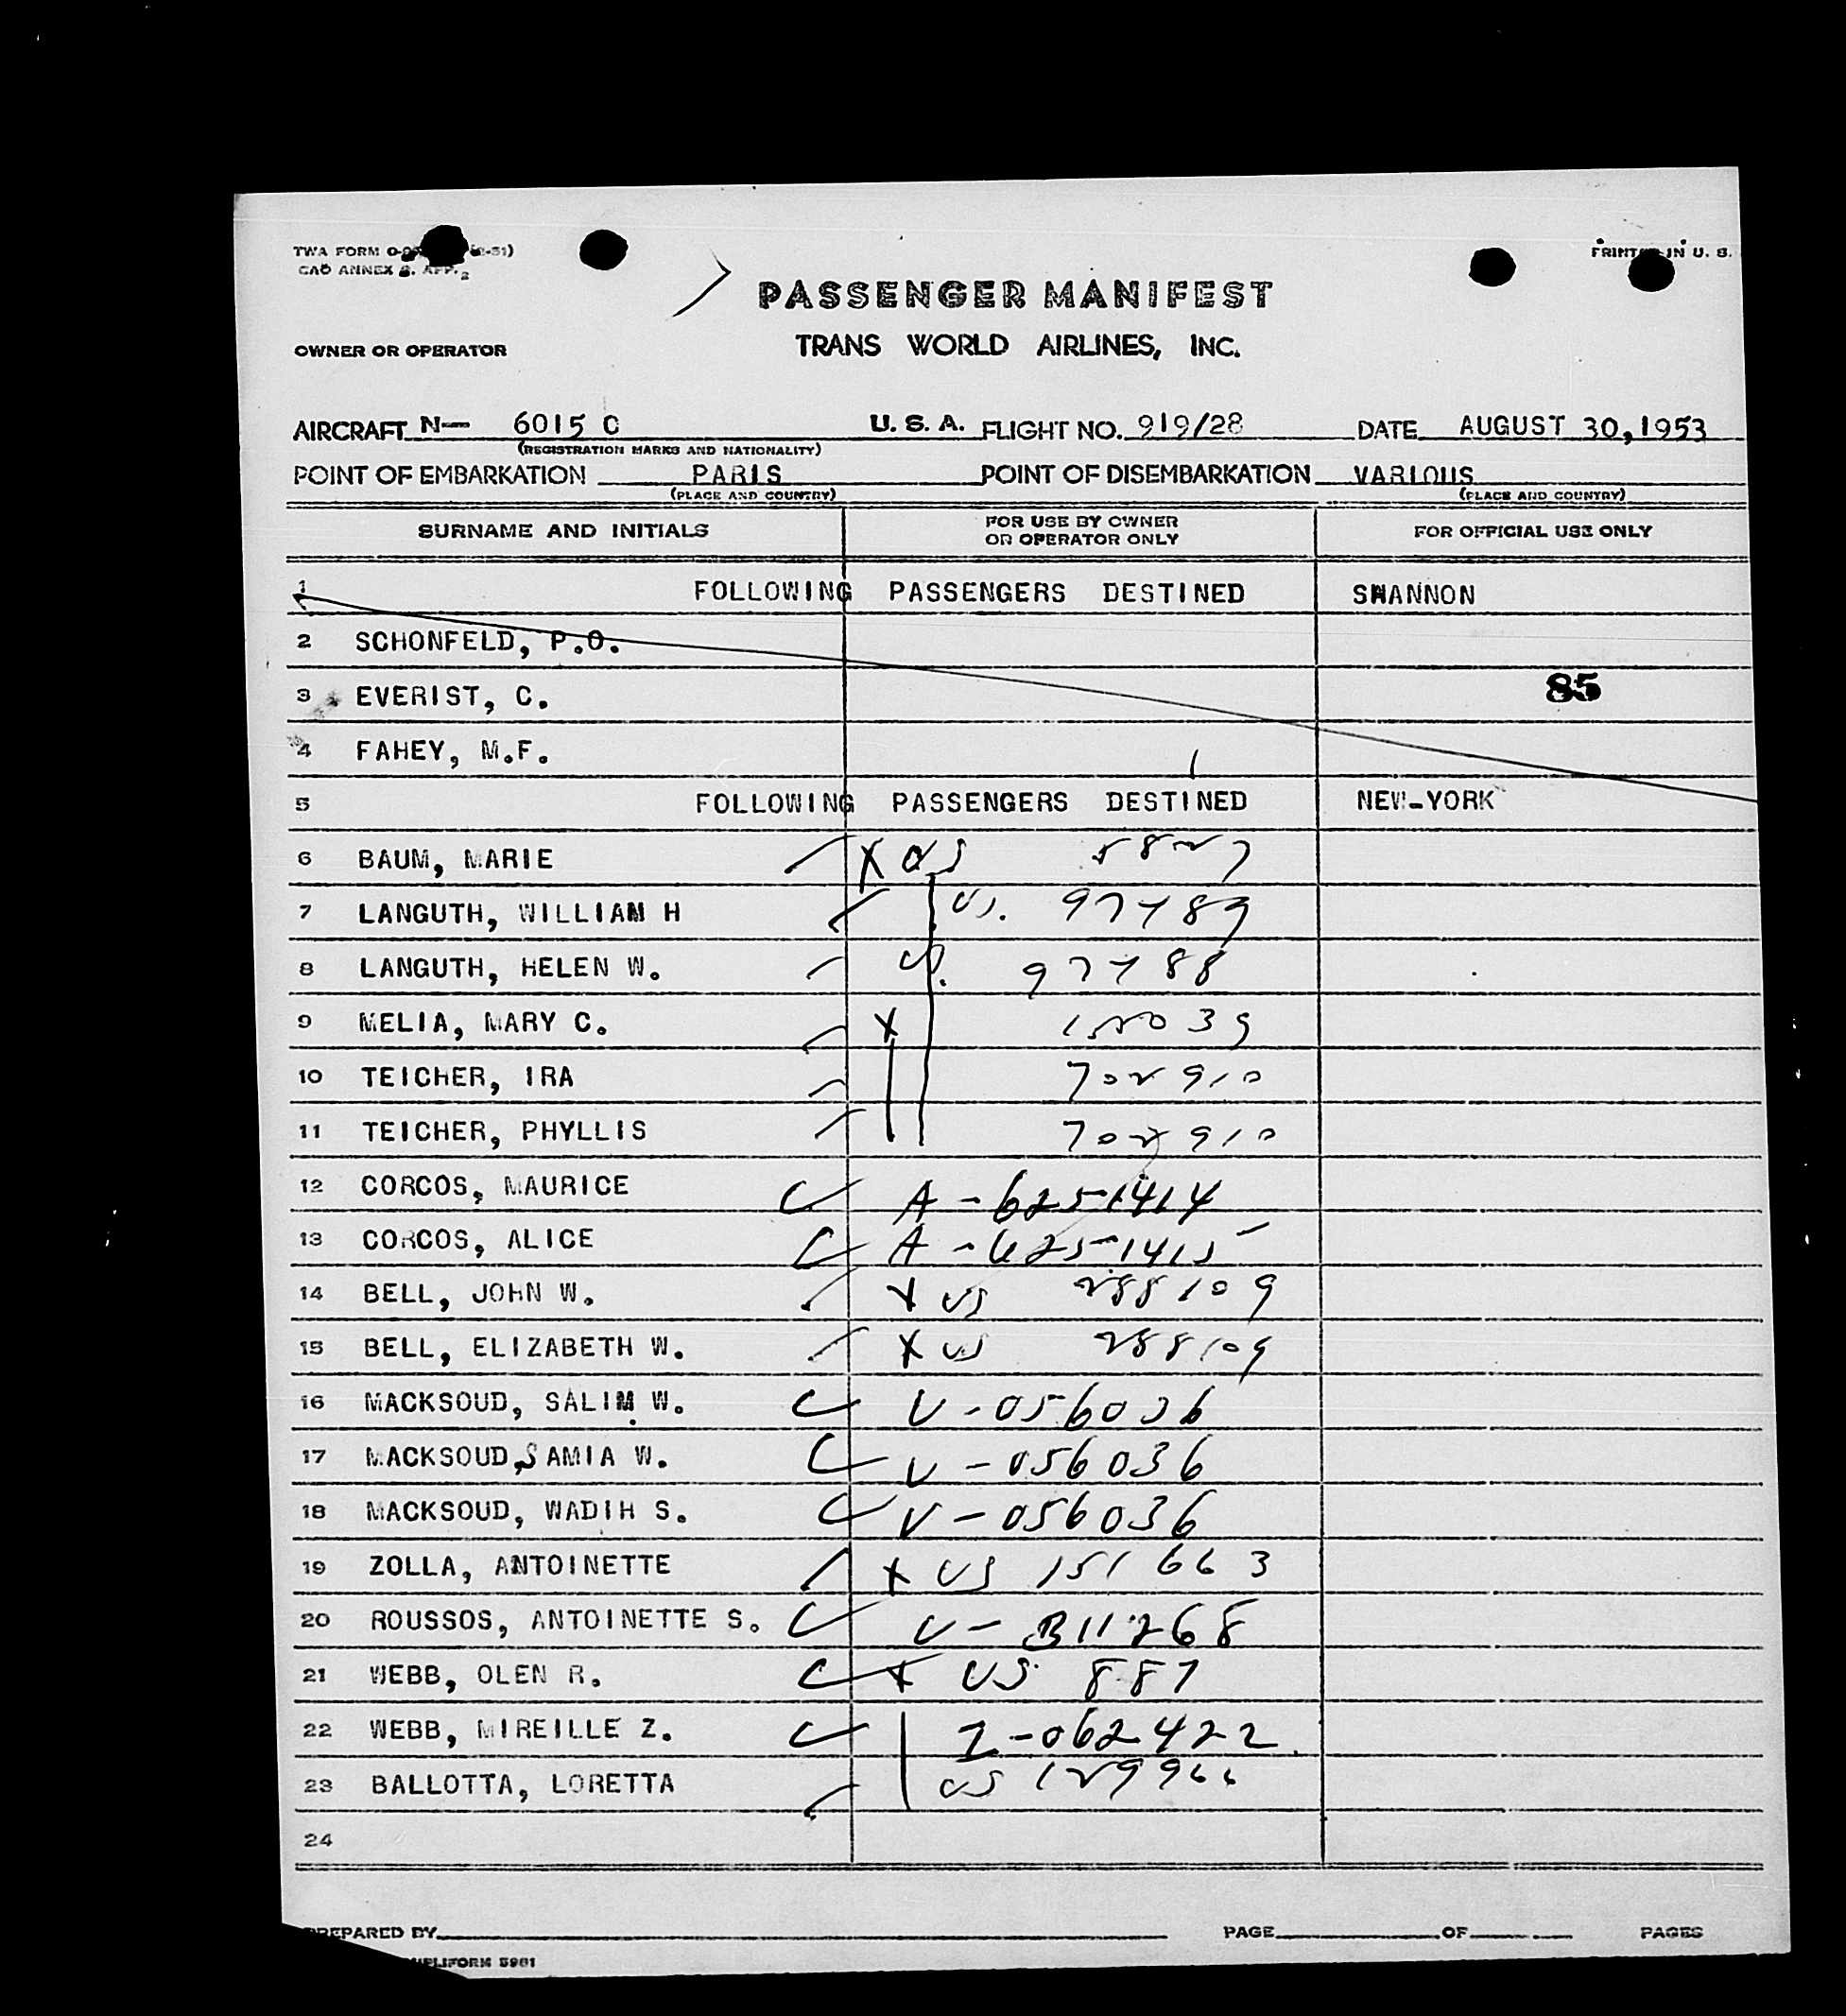 TWA FORM
PRINTED IN U. S.
CAO ANNEX 9. APP. 2
PASSENGER MANIFEST
OWNER OR OPERATOR TRANS WORLD AIRLINES, INC.
AIRCRAFT N- 6015 C U. S. A. FLIGHT NO. 919/28 DATE AUGUST 30, 1953
(REGISTRATION MARKS AND NATIONALITY)
POINT OF EMBARKATION PARIS POINT OF DISEMBARKATION VARIOUS
(PLACE AND COUNTRY) (PLACE AND COUNTRY)
SURNAME AND INITIALS FOR USE BY OWNER OR OPERATOR ONLY FOR OFFICIAL USE ONLY
1 FOLLOWING PASSENGERS DESTINED SHANNON
2 SCHONFELD, P.O.
3 EVERIST, C. 85
4 FAHEY, M.F.
5 FOLLOWING PASSENGERS DESTINED NEW-YORK
6 BAUM, MARIE X US 5827
7 LANGUTH, WILLIAM H US. 97789
8 LANGUTH, HELEN W. US. 97788
9 MELIA, MARY C. X
10 TEICHER, IRA 702910
11 TEICHER, PHYLLIS 702910
12 CORCOS, MAURICE A-6251414
13 CORCOS, ALICE A-6251415
14 BELL, JOHN W. X US 288109
15 BELL, ELIZABETH W. X US 288109
16 MACKSOUD, SALIM W. V-056036
17 MACKSOUD, SAMIA W. V-056036
18 MACKSOUD, WADIH S. V-056036
19 ZOLLA, ANTOINETTE X US 151663
20 ROUSSOS, ANTOINETTE S. V-311268
21 WEBB, OLEN R. X US 887
22 WEBB, MIREILLE Z. I-062422
23 BALLOTTA, LORETTA US 129966
24
PREPARED BY PAGE OF PAGES